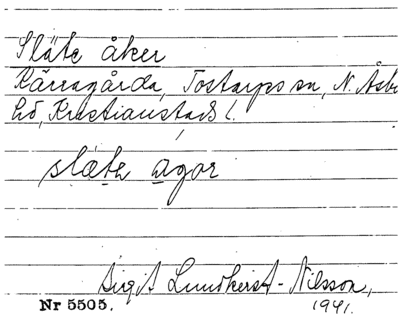 Släte åker
Kärragårda, Tostarps sn, N. Åsbo
hd, Kristianstads l.
släta agor
Birgit Lundkvist-Nilsson,
Nr 5505. 1941.